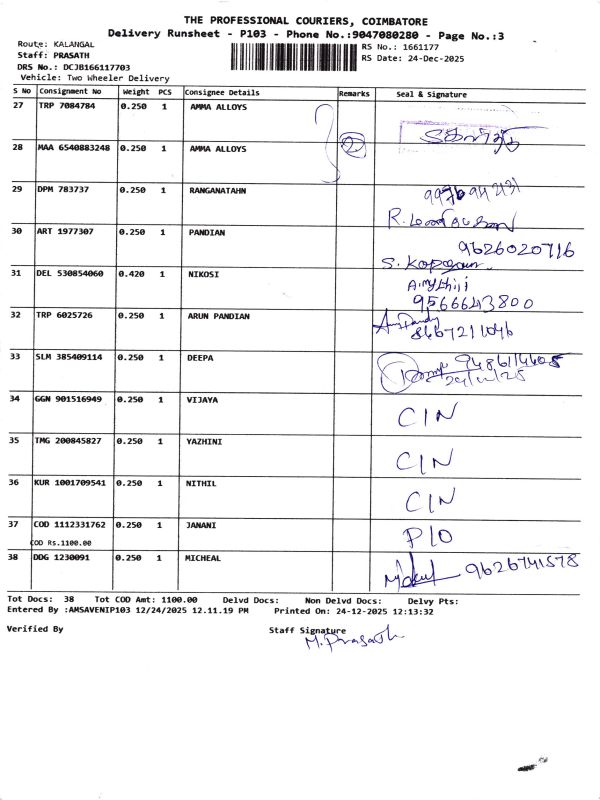 THE PROFESSIONAL COURIERS, COIMBATORE
Delivery Runsheet - P103 - Phone No.:9047080280 - Page No.:3
Route: KALANGAL
RS No.: 1661177
Staff: PRASATH
RS Date: 24-Dec-2025
DRS No.: DCJB166117703
Vehicle: Two Wheeler Delivery
S No Consignment No Weight PCS Consignee Details Remarks Seal & Signature
27 TRP 7084784 0.250 1 AMMA ALLOYS
28 MAA 6540883248 0.250 1 AMMA ALLOYS 2
29 DPM 783737 0.250 1 RANGANATAHN
R.
30 ART 1977307 0.250 1 PANDIAN 9626020716
S.
31 DEL 530854060 0.420 1 NIKOSI
9566643800
32 TRP 6025726 0.250 1 ARUN PANDIAN
33 SLM 385409114 0.250 1 DEEPA
34 GGN 901516949 0.250 1 VIJAYA C/N
35 TMG 200845827 0.250 1 YAZHINI C/N
36 KUR 1001709541 0.250 1 NITHIL C/N
37 COD 1112331762 0.250 1 JANANI P/O
COD Rs.1100.00
38 DDG 1230091 0.250 1 MICHEAL 9626741578
Tot Docs: 38 Tot COD Amt: 1100.00 Delvd Docs: Non Delvd Docs: Delvy Pts:
Entered By :AMSAVENIP103 12/24/2025 12.11.19 PM Printed On: 24-12-2025 12:13:32
Verified By Staff Signature
M. Prasath